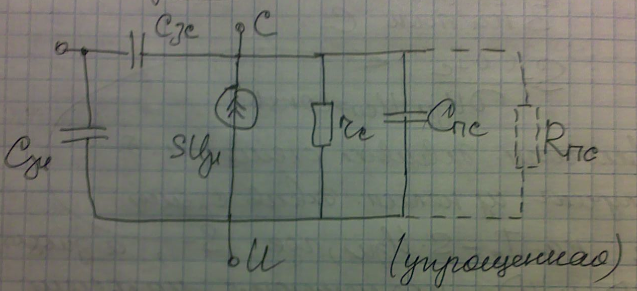 Cзс
C
Cзи
SUзи
rс
Cпс
Rпс
И
(упрощенная)